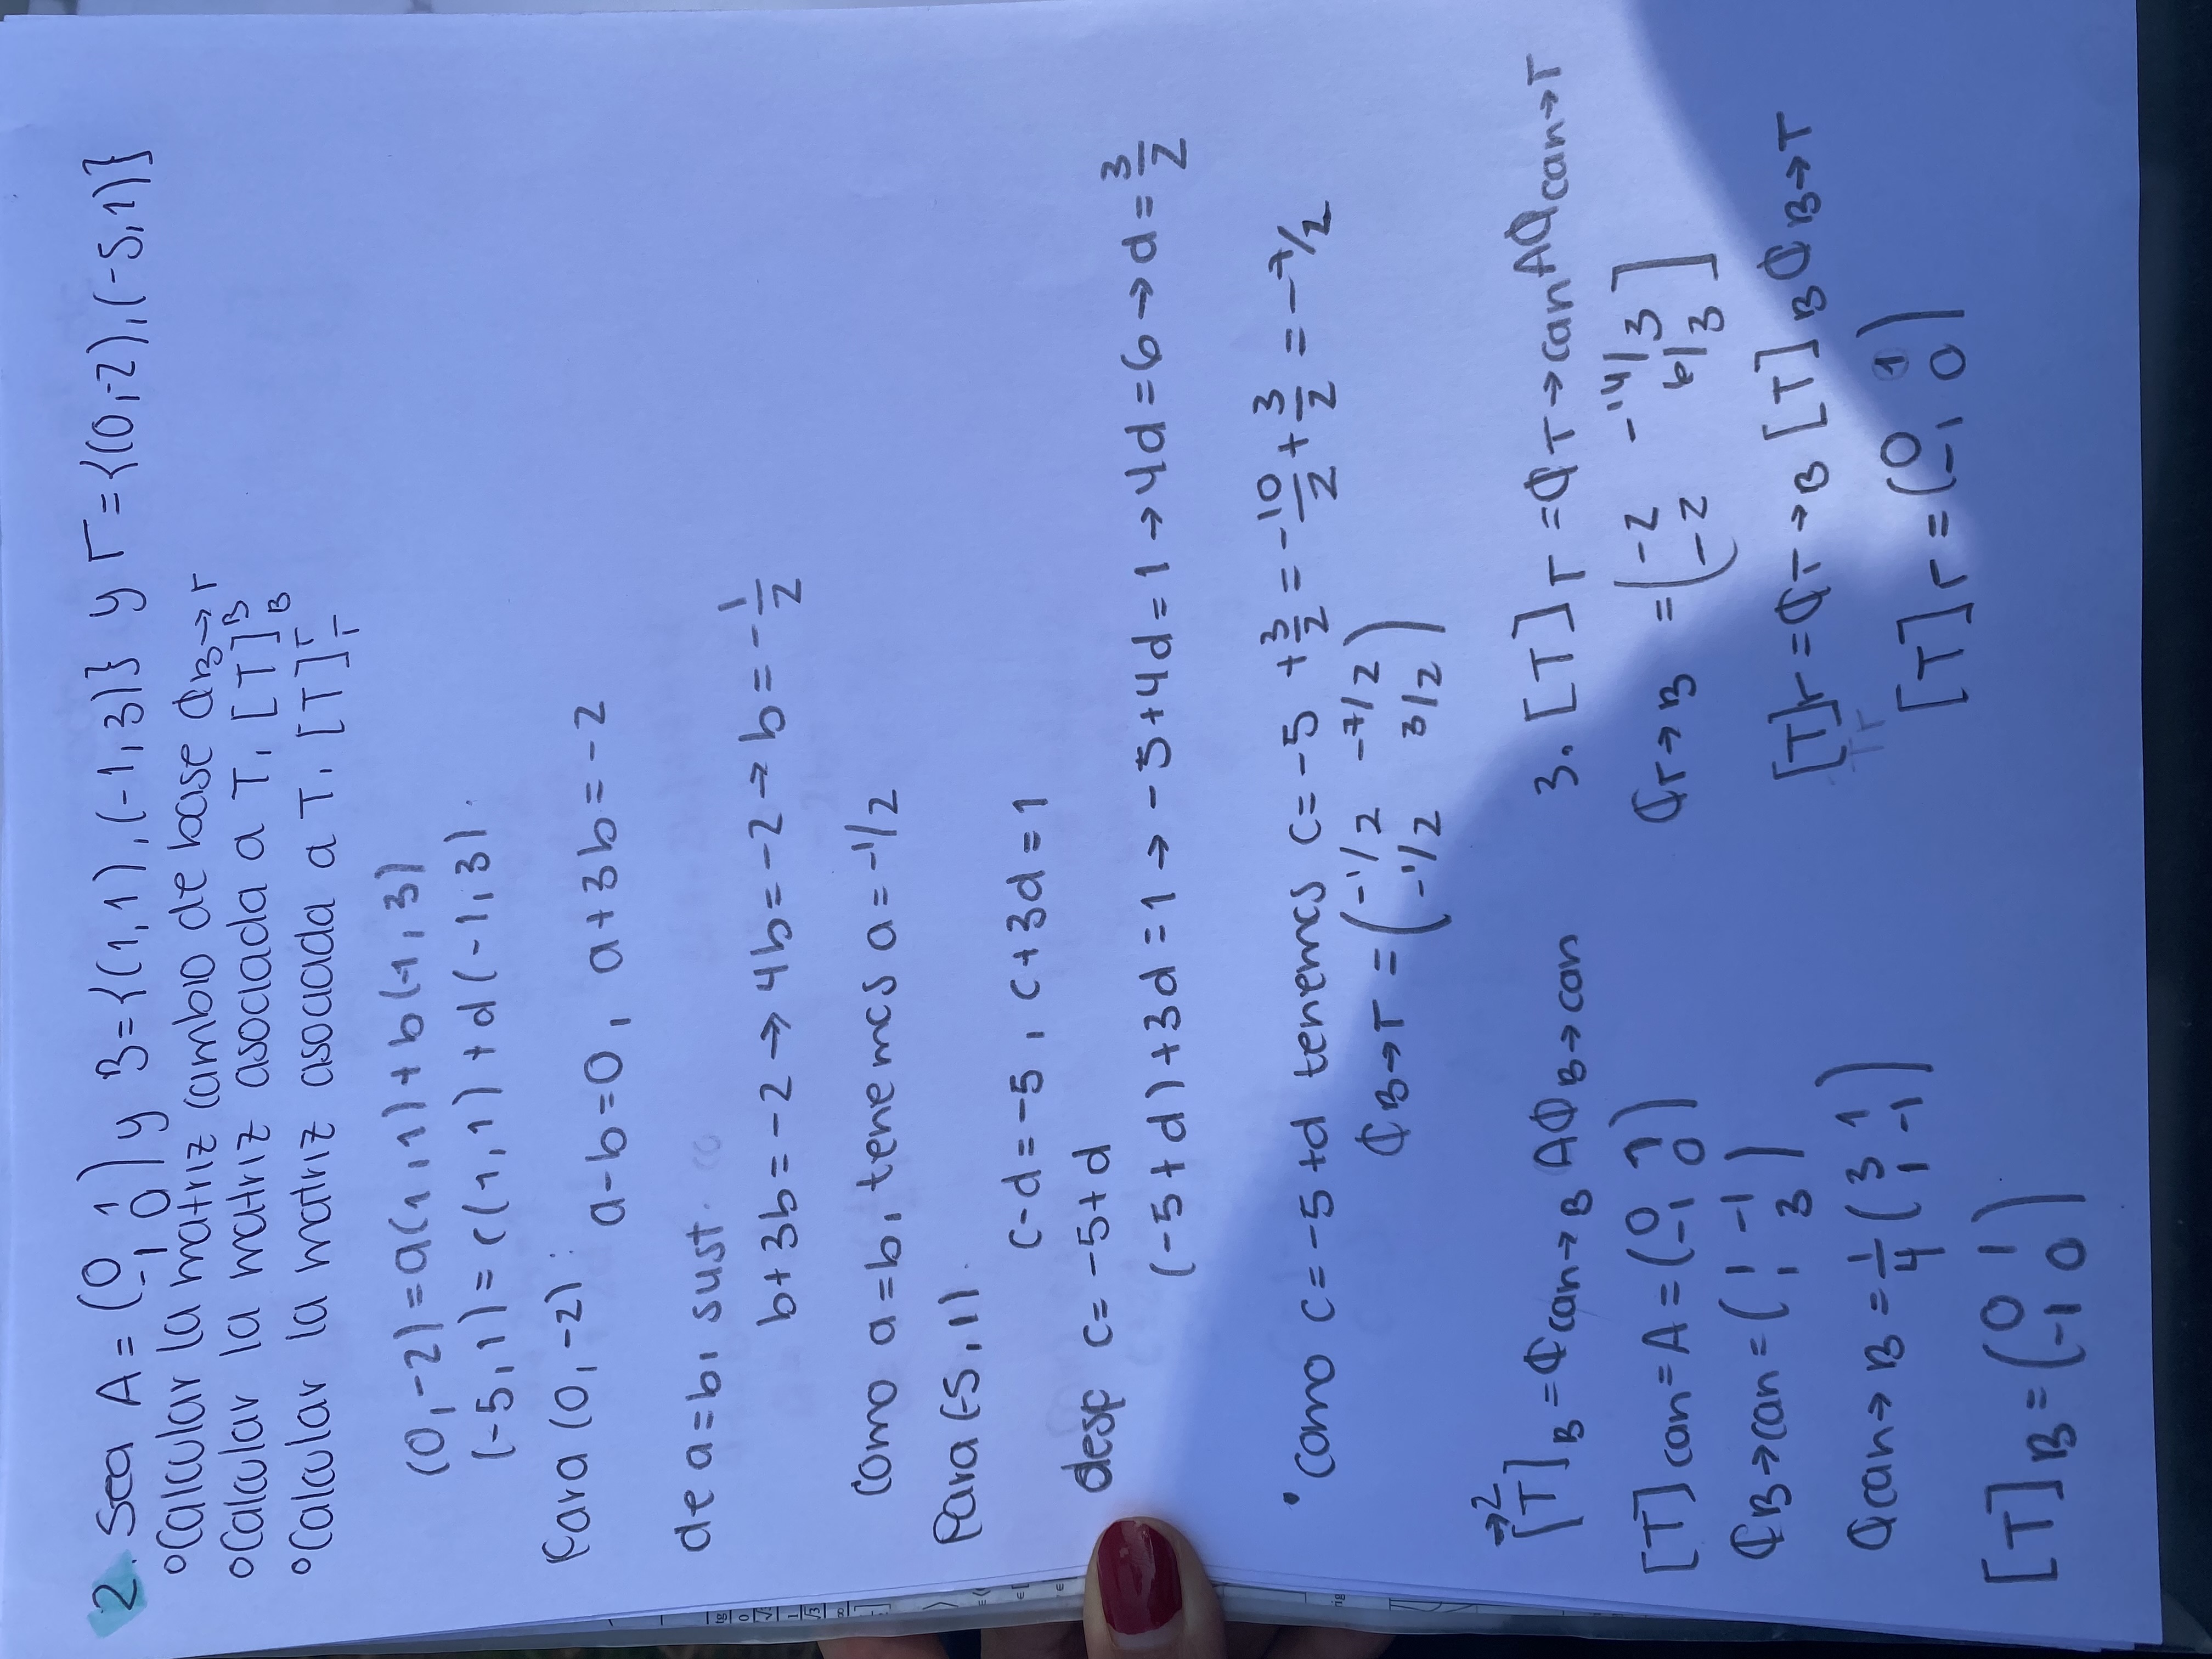 2. Sea A = (0 1 / -1 0) y B={(1,1),(-1,3)} y Γ={(0,-2),(-5,1)}
°Calcular la matriz cambio de base ₵B→Γ
°Calcular la matriz asociada a T, [T]^B_B
°Calcular la matriz asociada a T, [T]^Γ_Γ
(0,-2)=a(1,1)+b(-1,3)
(-5,1)=c(1,1)+d(-1,3).
Para (0,-2):
a-b=0, a+3b=-2
de a=b, sust.
b+3b=-2→4b=-2→b=-1/2
como a=b, tenemos a=-1/2
Para (-5,1).
c-d=-5, c+3d=1
desp c=-5+d
(-5+d)+3d=1→-5+4d=1→4d=6→d=3/2
• como c=-5+d tenemos c=-5+3/2=-10/2+3/2=-7/2
₵B→Γ=(-1/2 -7/2 / -1/2 3/2)
→2
[T]B=₵can→B A₵B→can
[T]can=A=(0 1 / -1 0)
₵B→can=(1 -1 / 1 3)
₵can→B=1/4(3 1 / 1 -1)
[T]B=(0 1 / -1 0)
3. [T]Γ=₵Γ→can A₵can→Γ
₵Γ→B=(-2 -14/3 / -2 6/3]
[T]Γ=₵Γ→B [T]B ₵B→Γ
[T]Γ=(0 1 / -1 0)